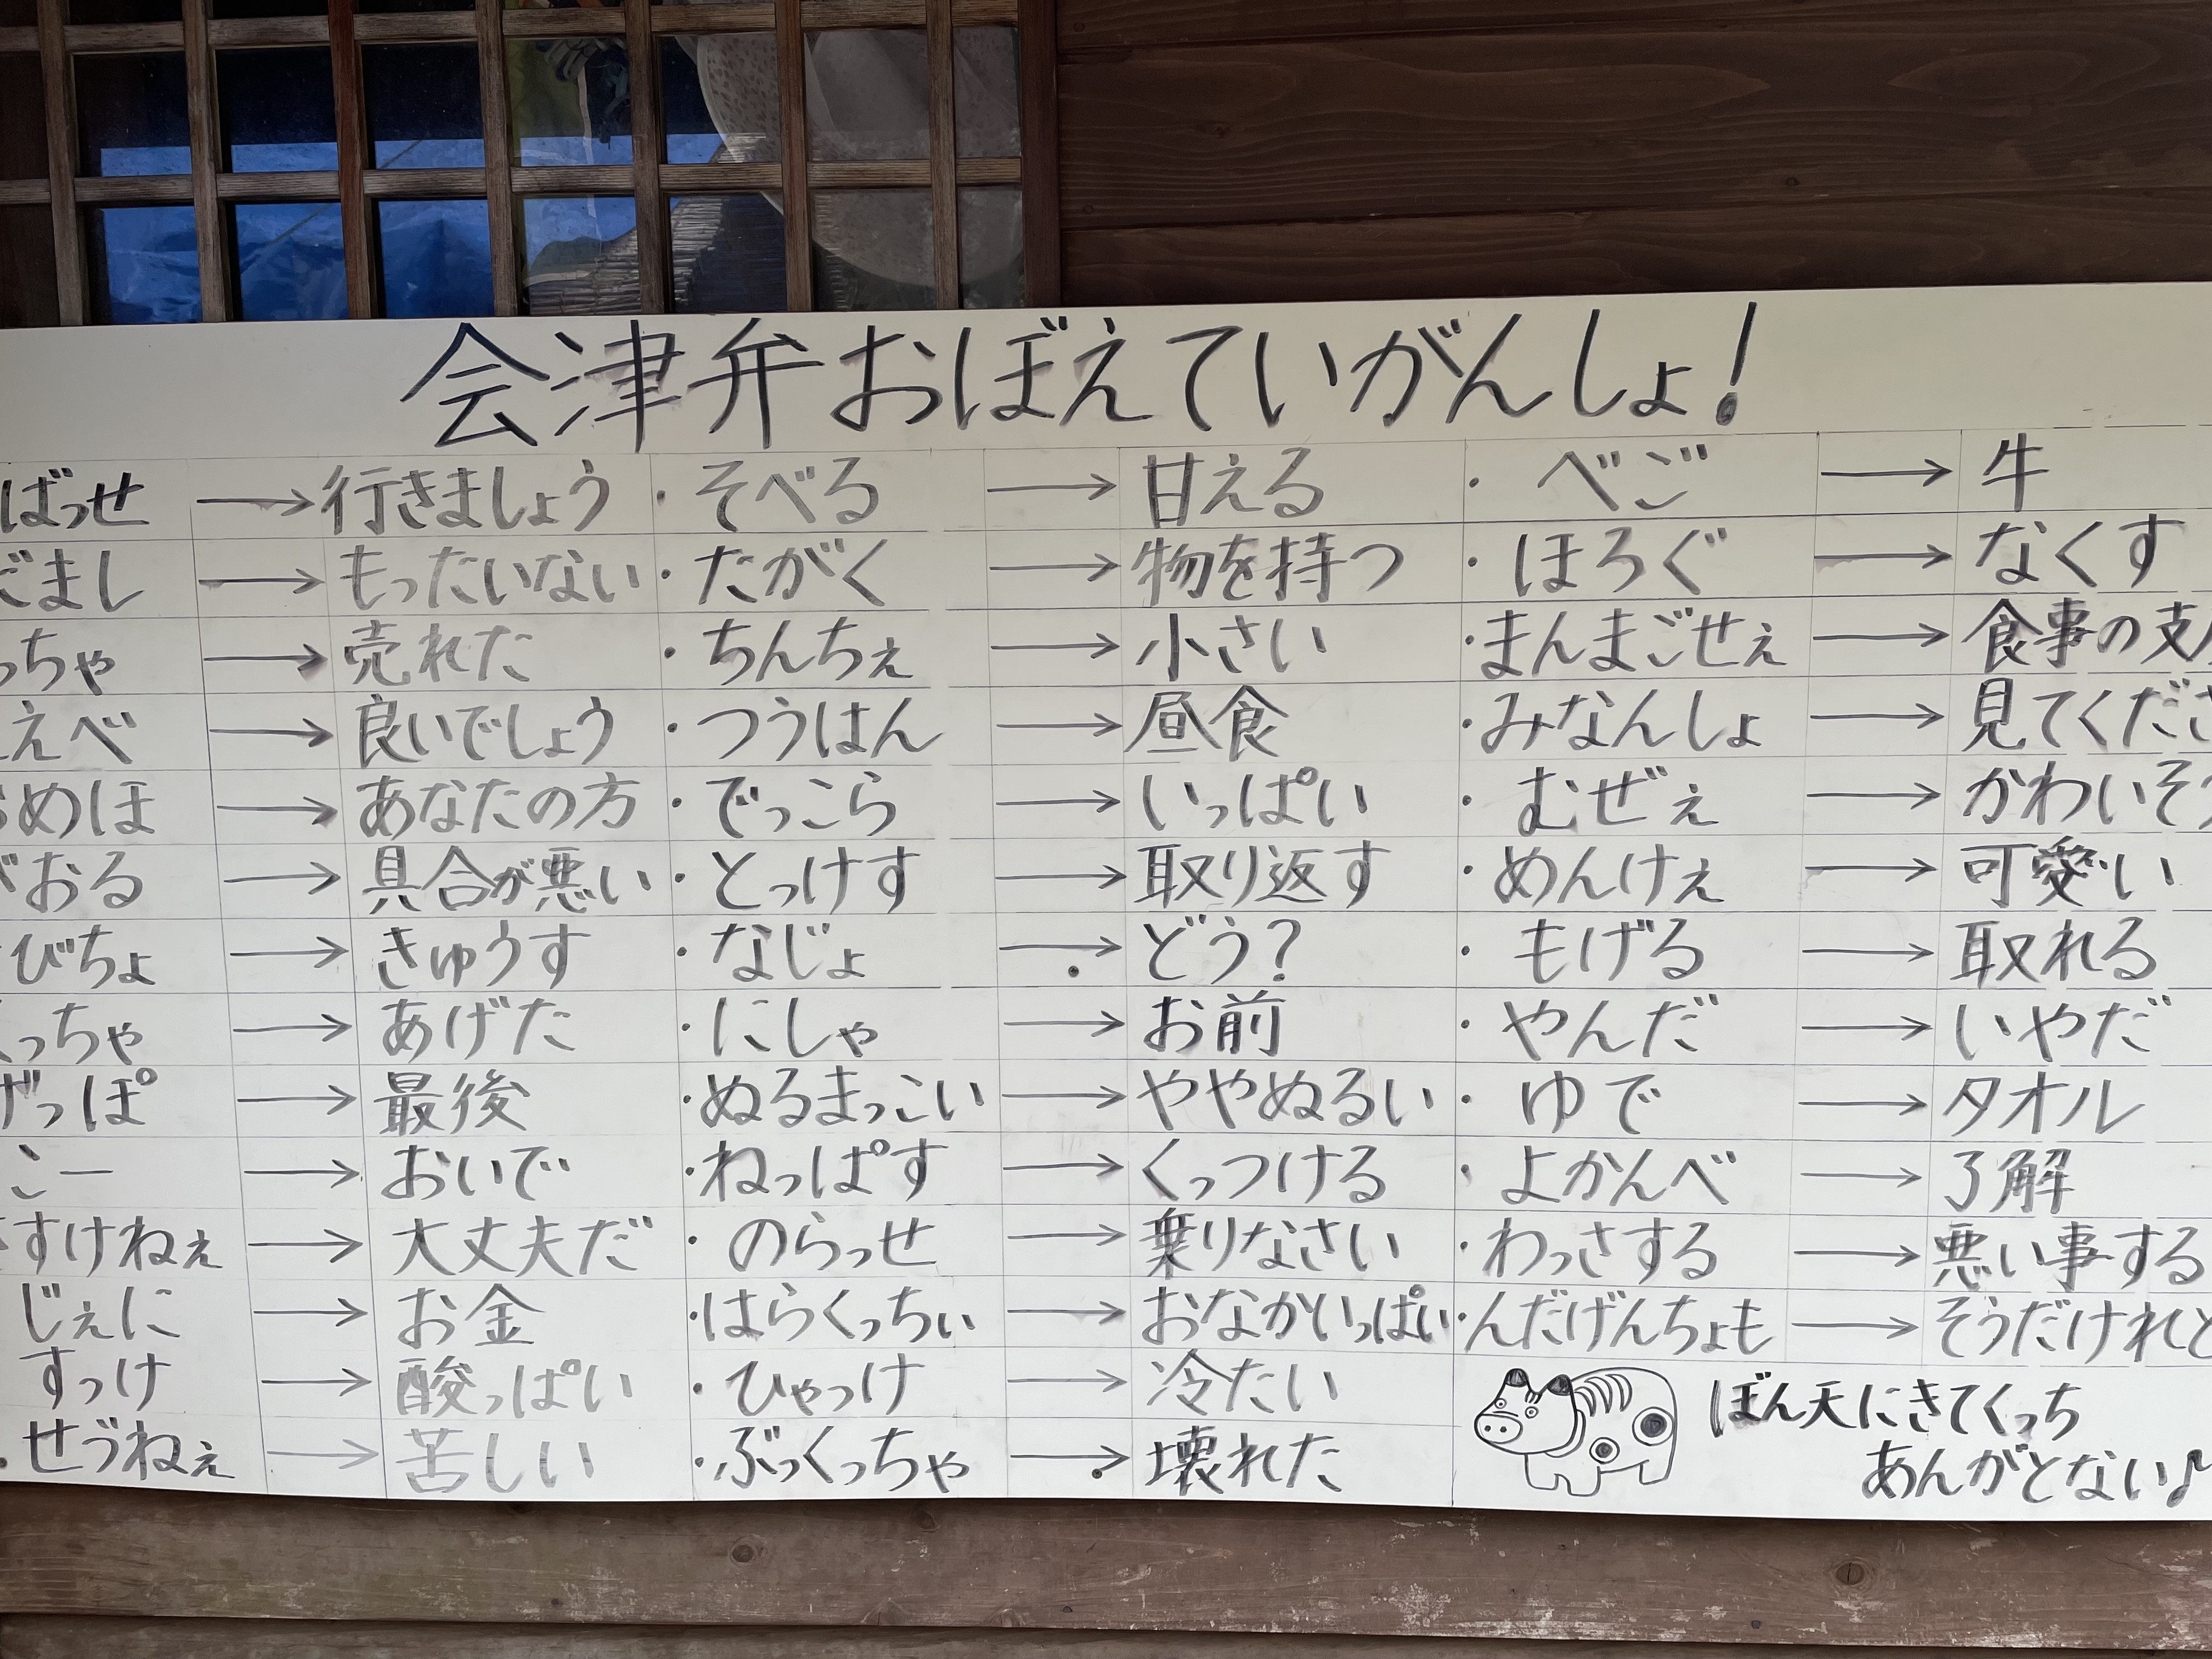 会津弁おぼえていがんしょ!
ばっせ → 行きましょう ・そべる → 甘える ・べご → 牛
だまし → もったいない ・たがく → 物を持つ ・ほろぐ → なくす
っちゃ → 売れた ・ちんちぇ → 小さい ・まんまごせぇ → 食事の支
えべ → 良いでしょう ・つうはん → 昼食 ・みなんしょ → 見てくださ
めほ → あなたの方 ・でっこら → いっぱい ・むぜぇ → かわいそう
おる → 具合が悪い ・とっけす → 取り返す ・めんけぇ → 可愛い
びちょ → きゅうす ・なじょ → どう? ・もげる → 取れる
っちゃ → あげた ・にしゃ → お前 ・やんだ → いやだ
げっぽ → 最後 ・ぬるまっこい → ややぬるい ・ゆで → タオル
こー → おいで ・ねっぱす → くっつける ・よかんべ → 了解
すけねぇ → 大丈夫だ ・のらっせ → 乗りなさい ・わっさする → 悪い事する
じぇに → お金 ・はらくっちぃ → おなかいっぱい ・んだげんちょも → そうだけれど
すっけ → 酸っぱい ・ひゃっけ → 冷たい
・せづねぇ → 苦しい ・ぶっくっちゃ → 壊れた
ぼん天にきてくっち
あんがとない♪